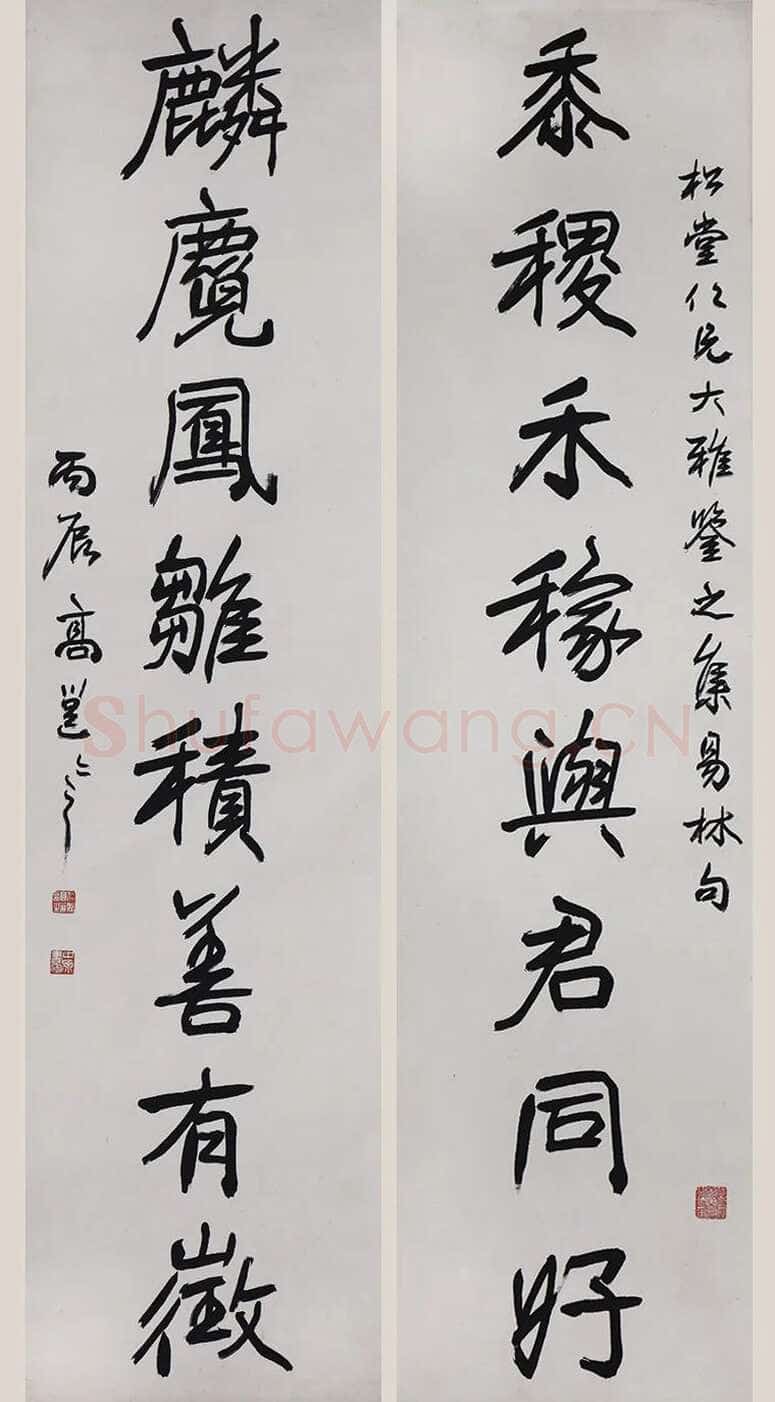 松堂仁兄大雅鑒之集易林句
黍稷禾稼與君同好
麟麑鳳雛積善有徵
丙辰高邕
Shufawang.CN